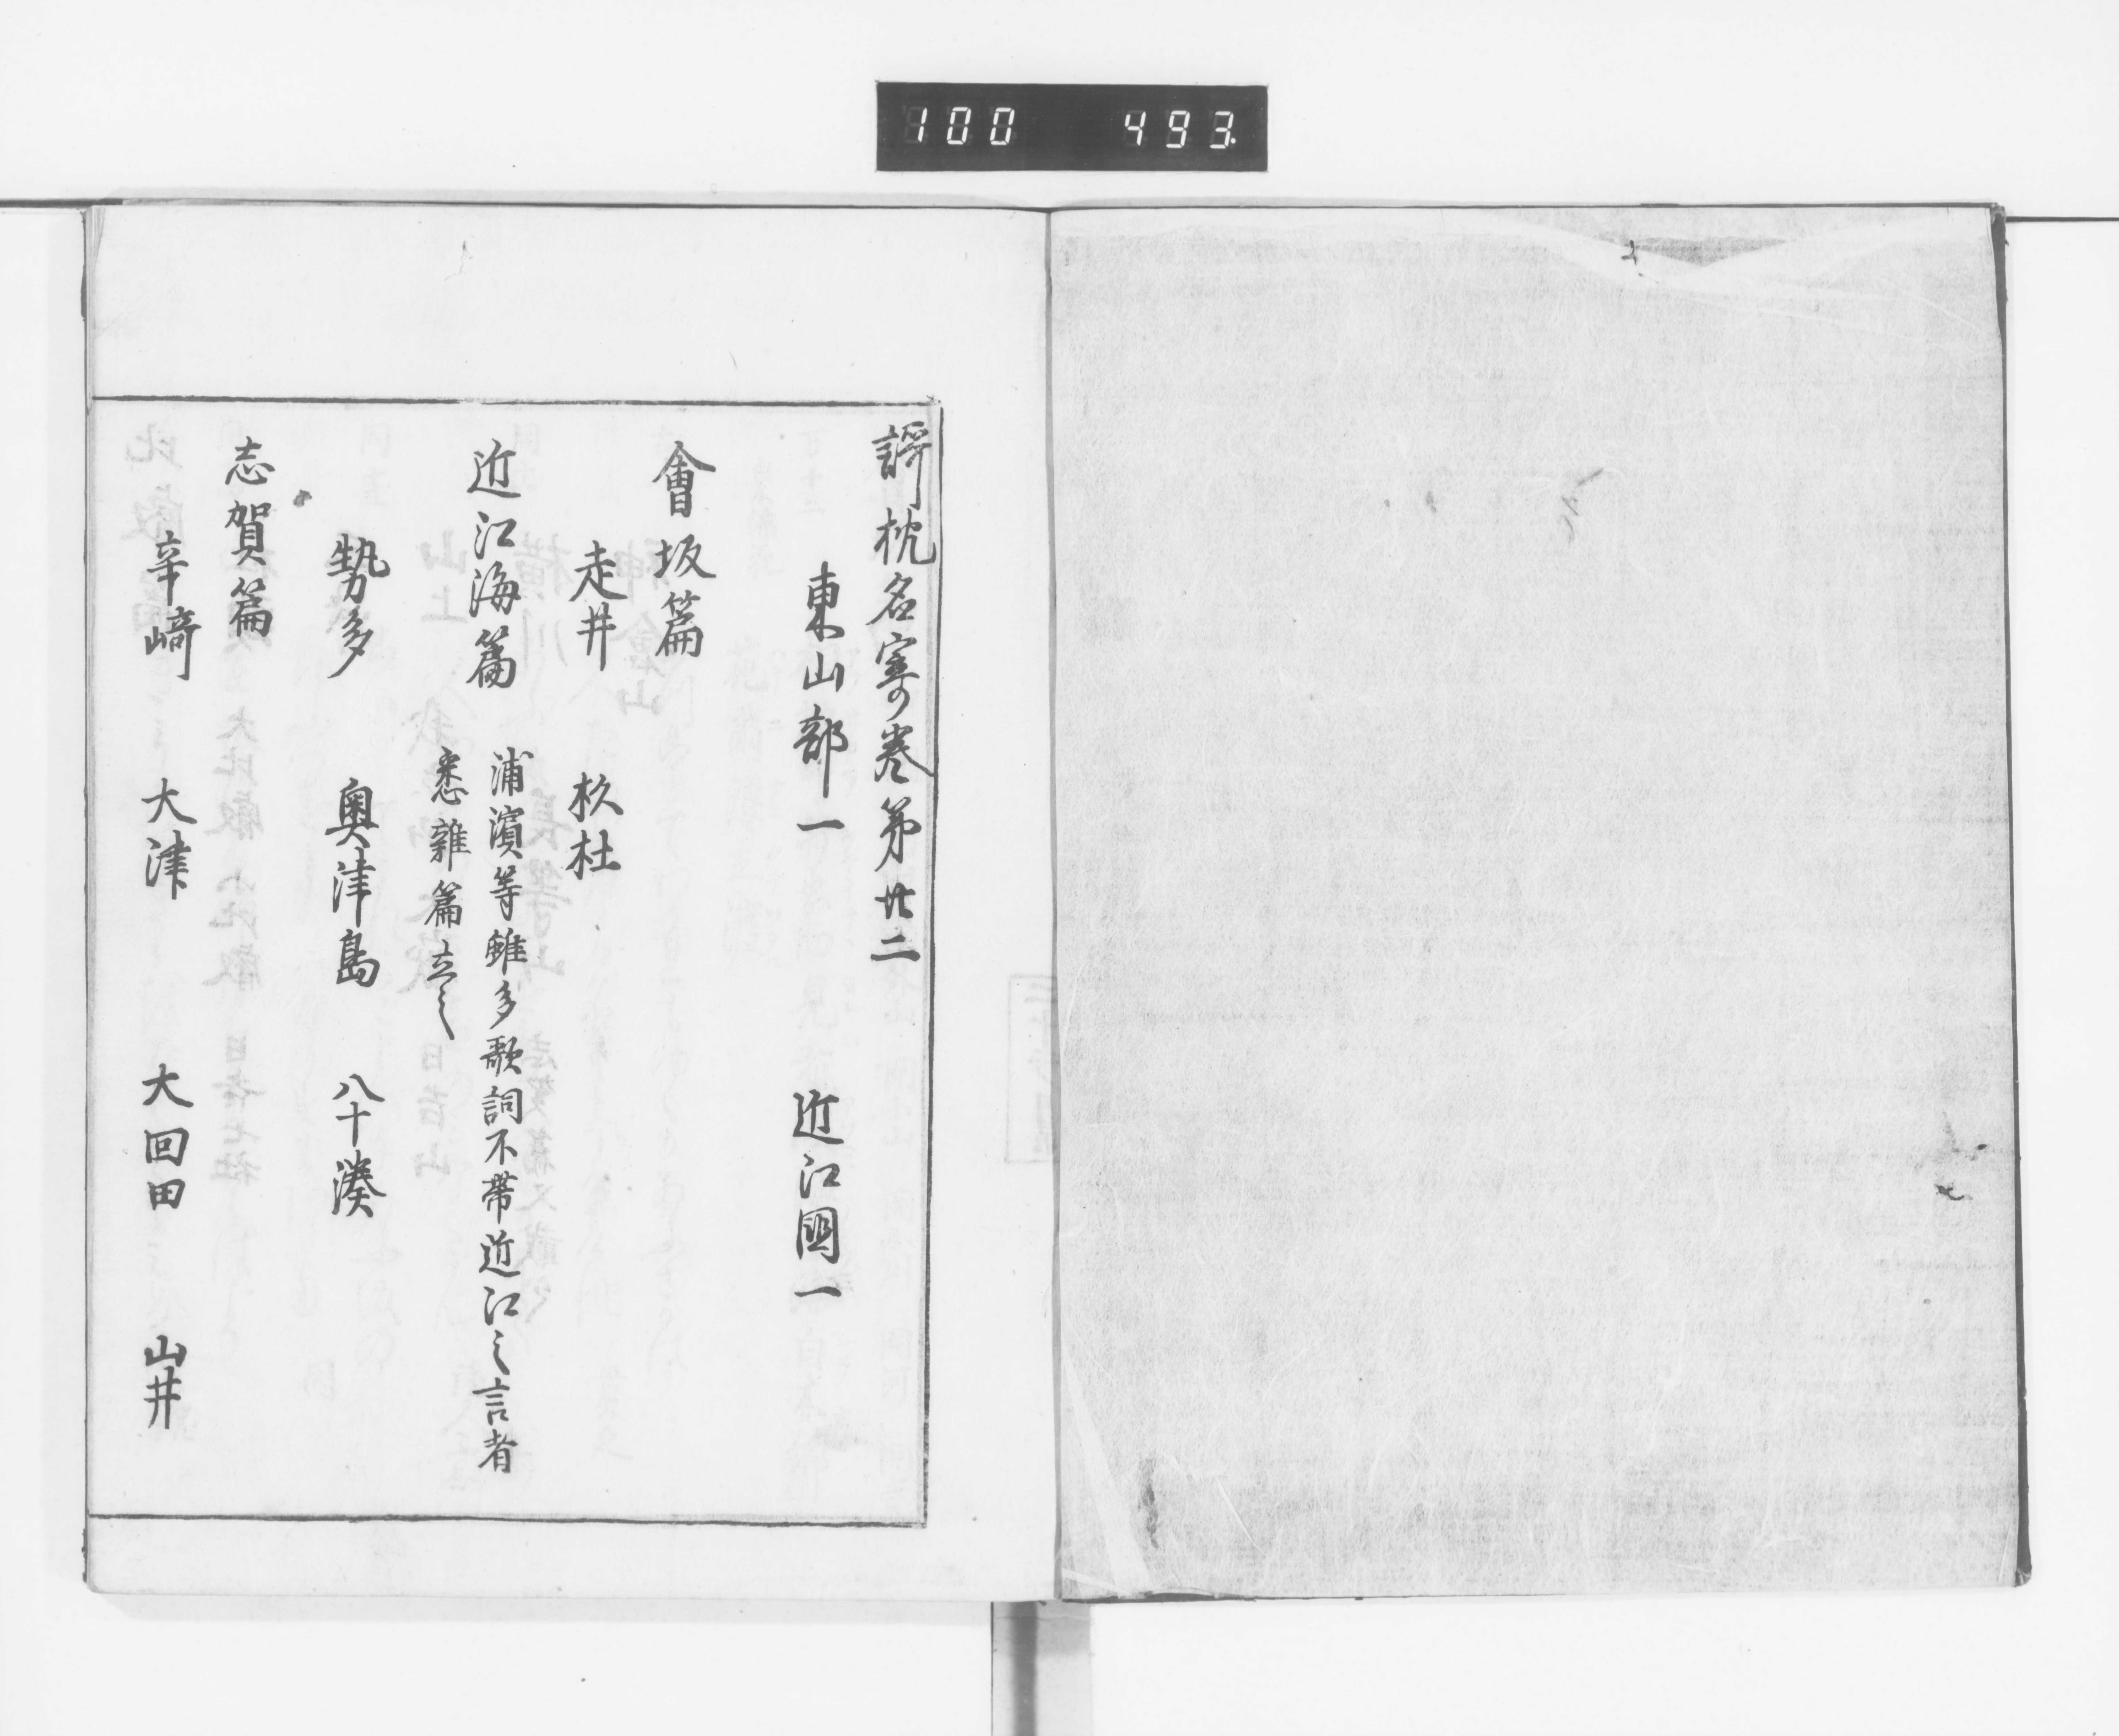 100 493.
謌枕名寄卷第廿二
東山部一 近江國一
會坂篇
走井 杦杜
近江海篇 浦濱等雖多歌詞不帶近江之言者
悉雜篇立之
勢多 奥津島 八十湊
志賀篇
辛崎 大津 大回田 山井